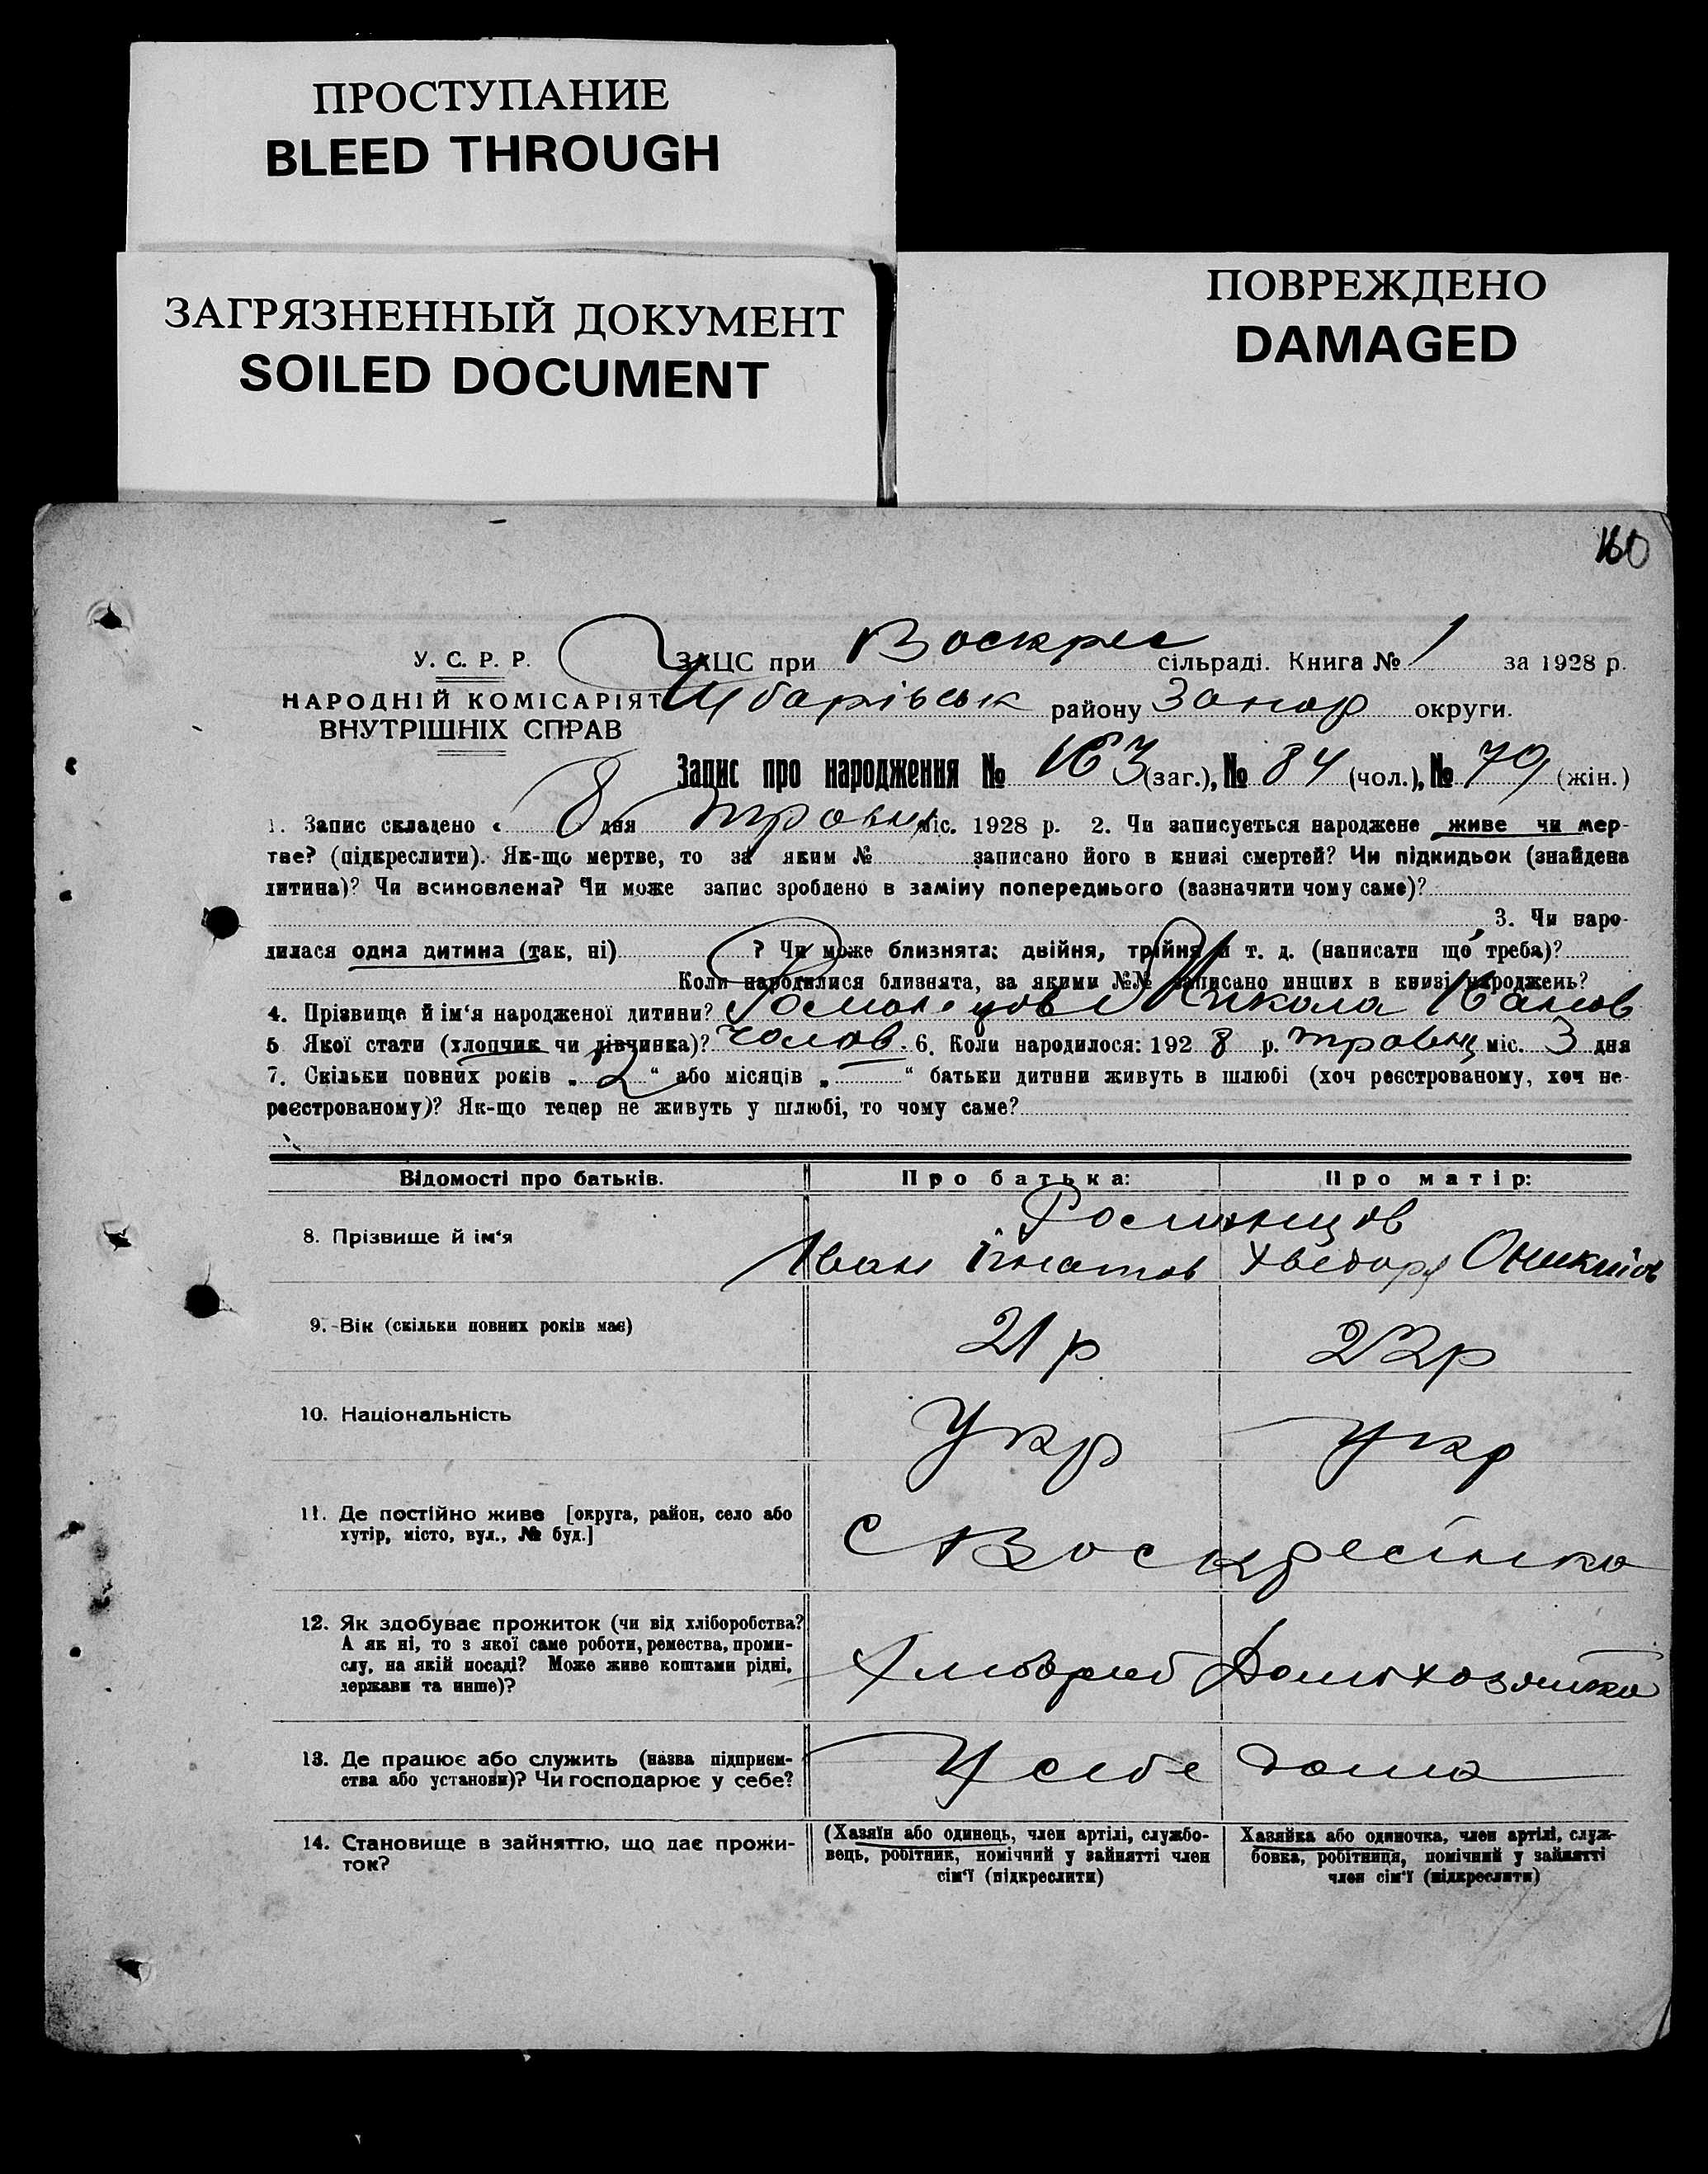 ПРОСТУПАНИЕ
BLEED THROUGH
ЗАГРЯЗНЕННЫЙ ДОКУМЕНТ
SOILED DOCUMENT
ПОВРЕЖДЕНО
DAMAGED
160
У. С. Р. Р.
НАРОДНІЙ КОМІСАРІЯТ
ВНУТРІШНІХ СПРАВ
ЗАЦС при Воскрес сільраді. Книга № 1 за 1928 р.
району Запор округи.
Запис про народження № 163 (заг.), № 84 (чол.), № 79 (жін.)
1. Запис складено « 8 дня травня міс. 1928 р. 2. Чи записується народжене живе чи мер-
тве? (підкреслити). Як-що мертве, то за яким № записано його в книзі смертей? Чи підкидьок (знайдена
дитина)? Чи всиновлена? Чи може запис зроблено в заміну попереднього (зазначити чому саме)?
3. Чи наро-
дилася одна дитина (так, ні) ? Чи може близнята: двійня, трійня й т. д. (написати що треба)?
Коли народилися близнята, за якими №№ записано инших в книзі народжень?
4. Прізвище й ім‘я народженої дитини? Микола Иванов
5 Якої стати (хлопчик чи дівчинка)? чолов. 6. Коли народилося: 1928 р. травня міс. 3 дня
7. Скільки повних років „ 2 “ або місяців „ “ батьки дитини живуть в шлюбі (хоч реєстрованому, хоч не-
реєстрованому)? Як-що тепер не живуть у шлюбі, то чому саме?
Відомості про батьків. Про батька: Про матір:
8. Прізвище й ім‘я
Іван Ігнатов Хведора Оникиїв
9. Вік (скільки повних років має) 21 р 22 р
10. Національність Укр Укр
11. Де постійно живе [округа, район, село або
хутір, місто, вул., № буд.]
с Воскресінка
12. Як здобуває прожиток (чи від хліборобства?
А як ні, то з якої саме роботи, ремества, проми-
слу, на якій посаді? Може живе коштами рідні,
держави та инше)?
Домохозяйка
13. Де працює або служить (назва підприєм-
ства або установи)? Чи господарює у себе?
У себе дома
14. Становище в зайняттю, що дає прожи-
ток?
(Хазяїн або одинець, член артілі, службо-
вець, робітник, помічний у зайнятті член
сім‘ї (підкреслити)
Хазяйка або одиночка, член артілі, служ-
бовка, робітниця, помічний у зайнятті
член сім‘ї (підкреслити)